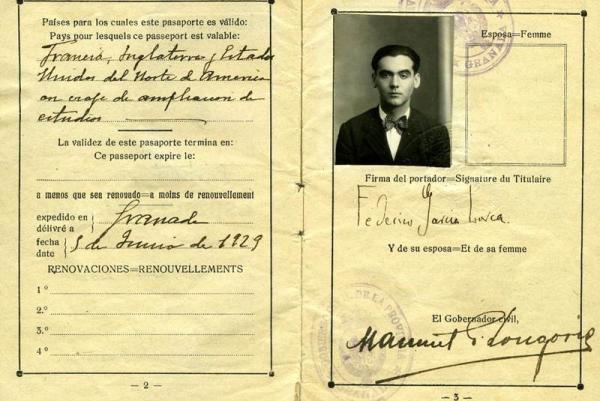 Países para los cuales este pasaporte es válido:
Pays pour lesquels ce passeport est valable:
Francia, Inglaterra y Estados
Unidos del Norte d America
en viaje de ampliacion de
estudios
La validez de este pasaporte termina en:
Ce passeport expire le:
a menos que sea renovado=a moins de renouvellement
expedido en
délivré a
Granada
fecha
date
5 de Junio de 1929
RENOVACIONES=RENOUVELLEMENTS
1º
2º
3.º
4º
— 2 —
GRANADA
Esposa=Femme
Firma del portador=Signature du Titulaire
Federico García Lorca.
Y de su esposa=Et de sa femme
DE LA PROVINC
El Gobernador civil,
— 3 —